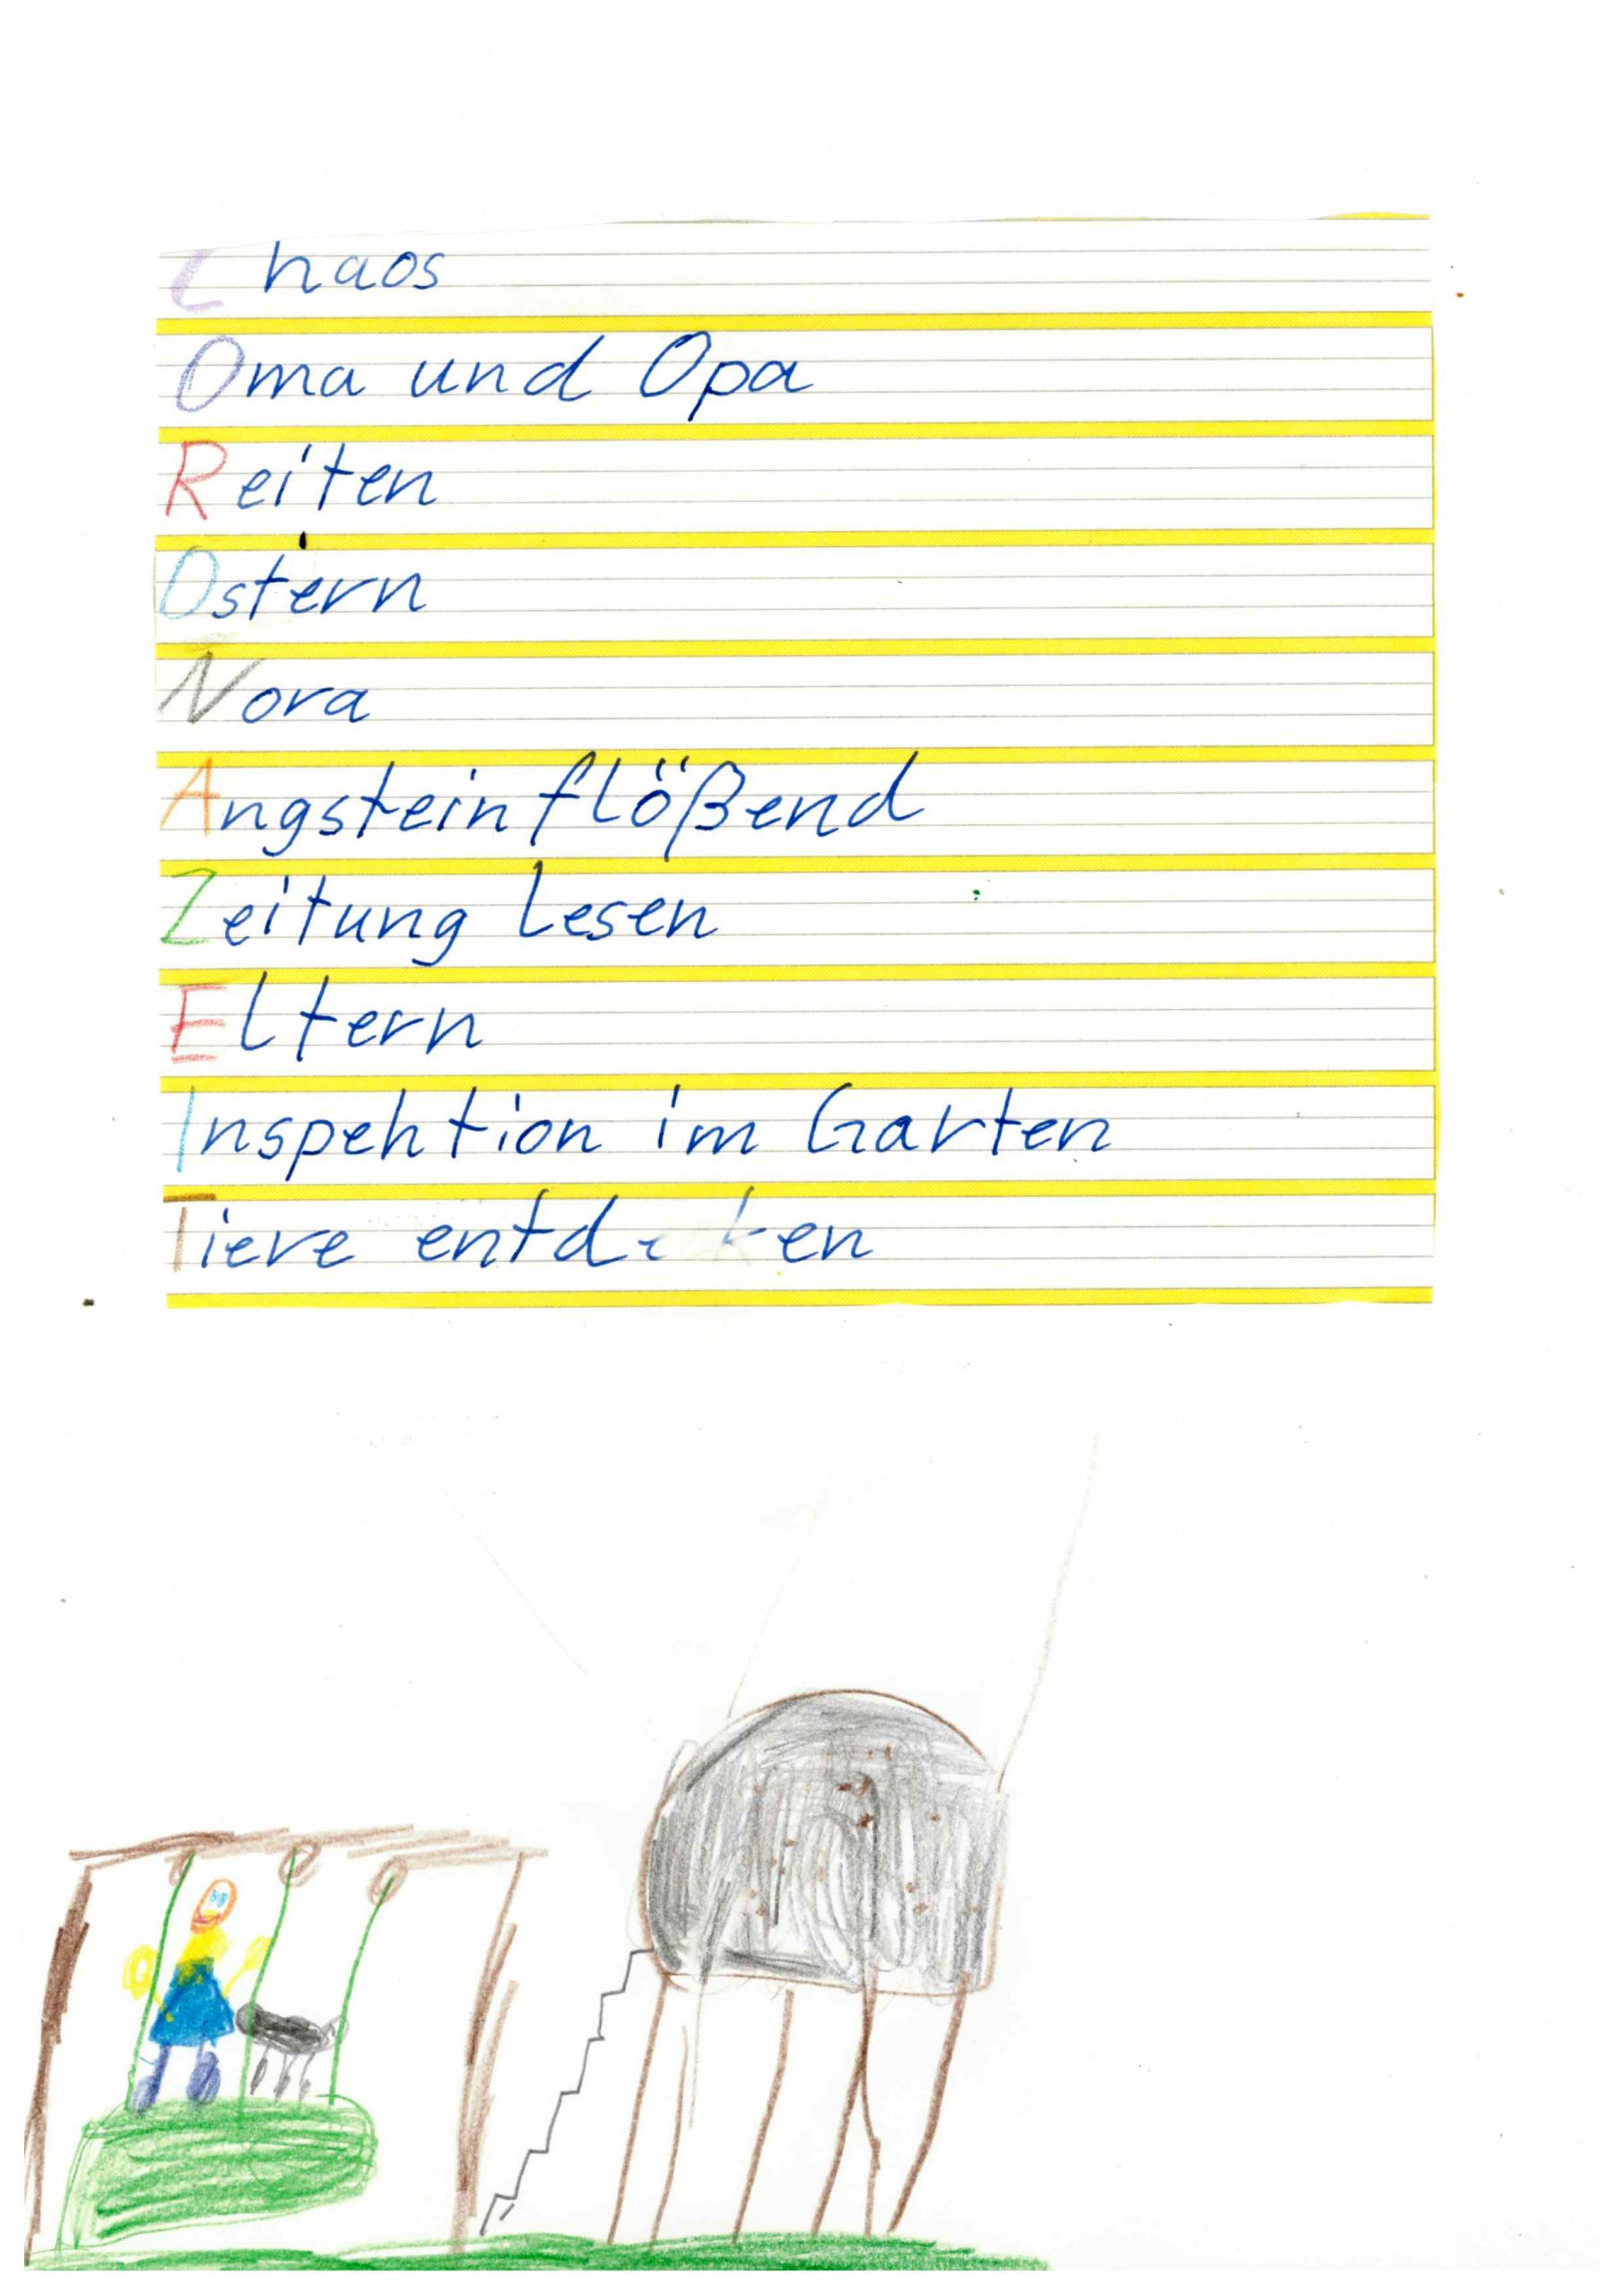 Chaos
Oma und Opa
Reiten
Ostern
Nora
Angsteinflößend
Zeitung lesen
Eltern
Inspektion im Garten
Tiere